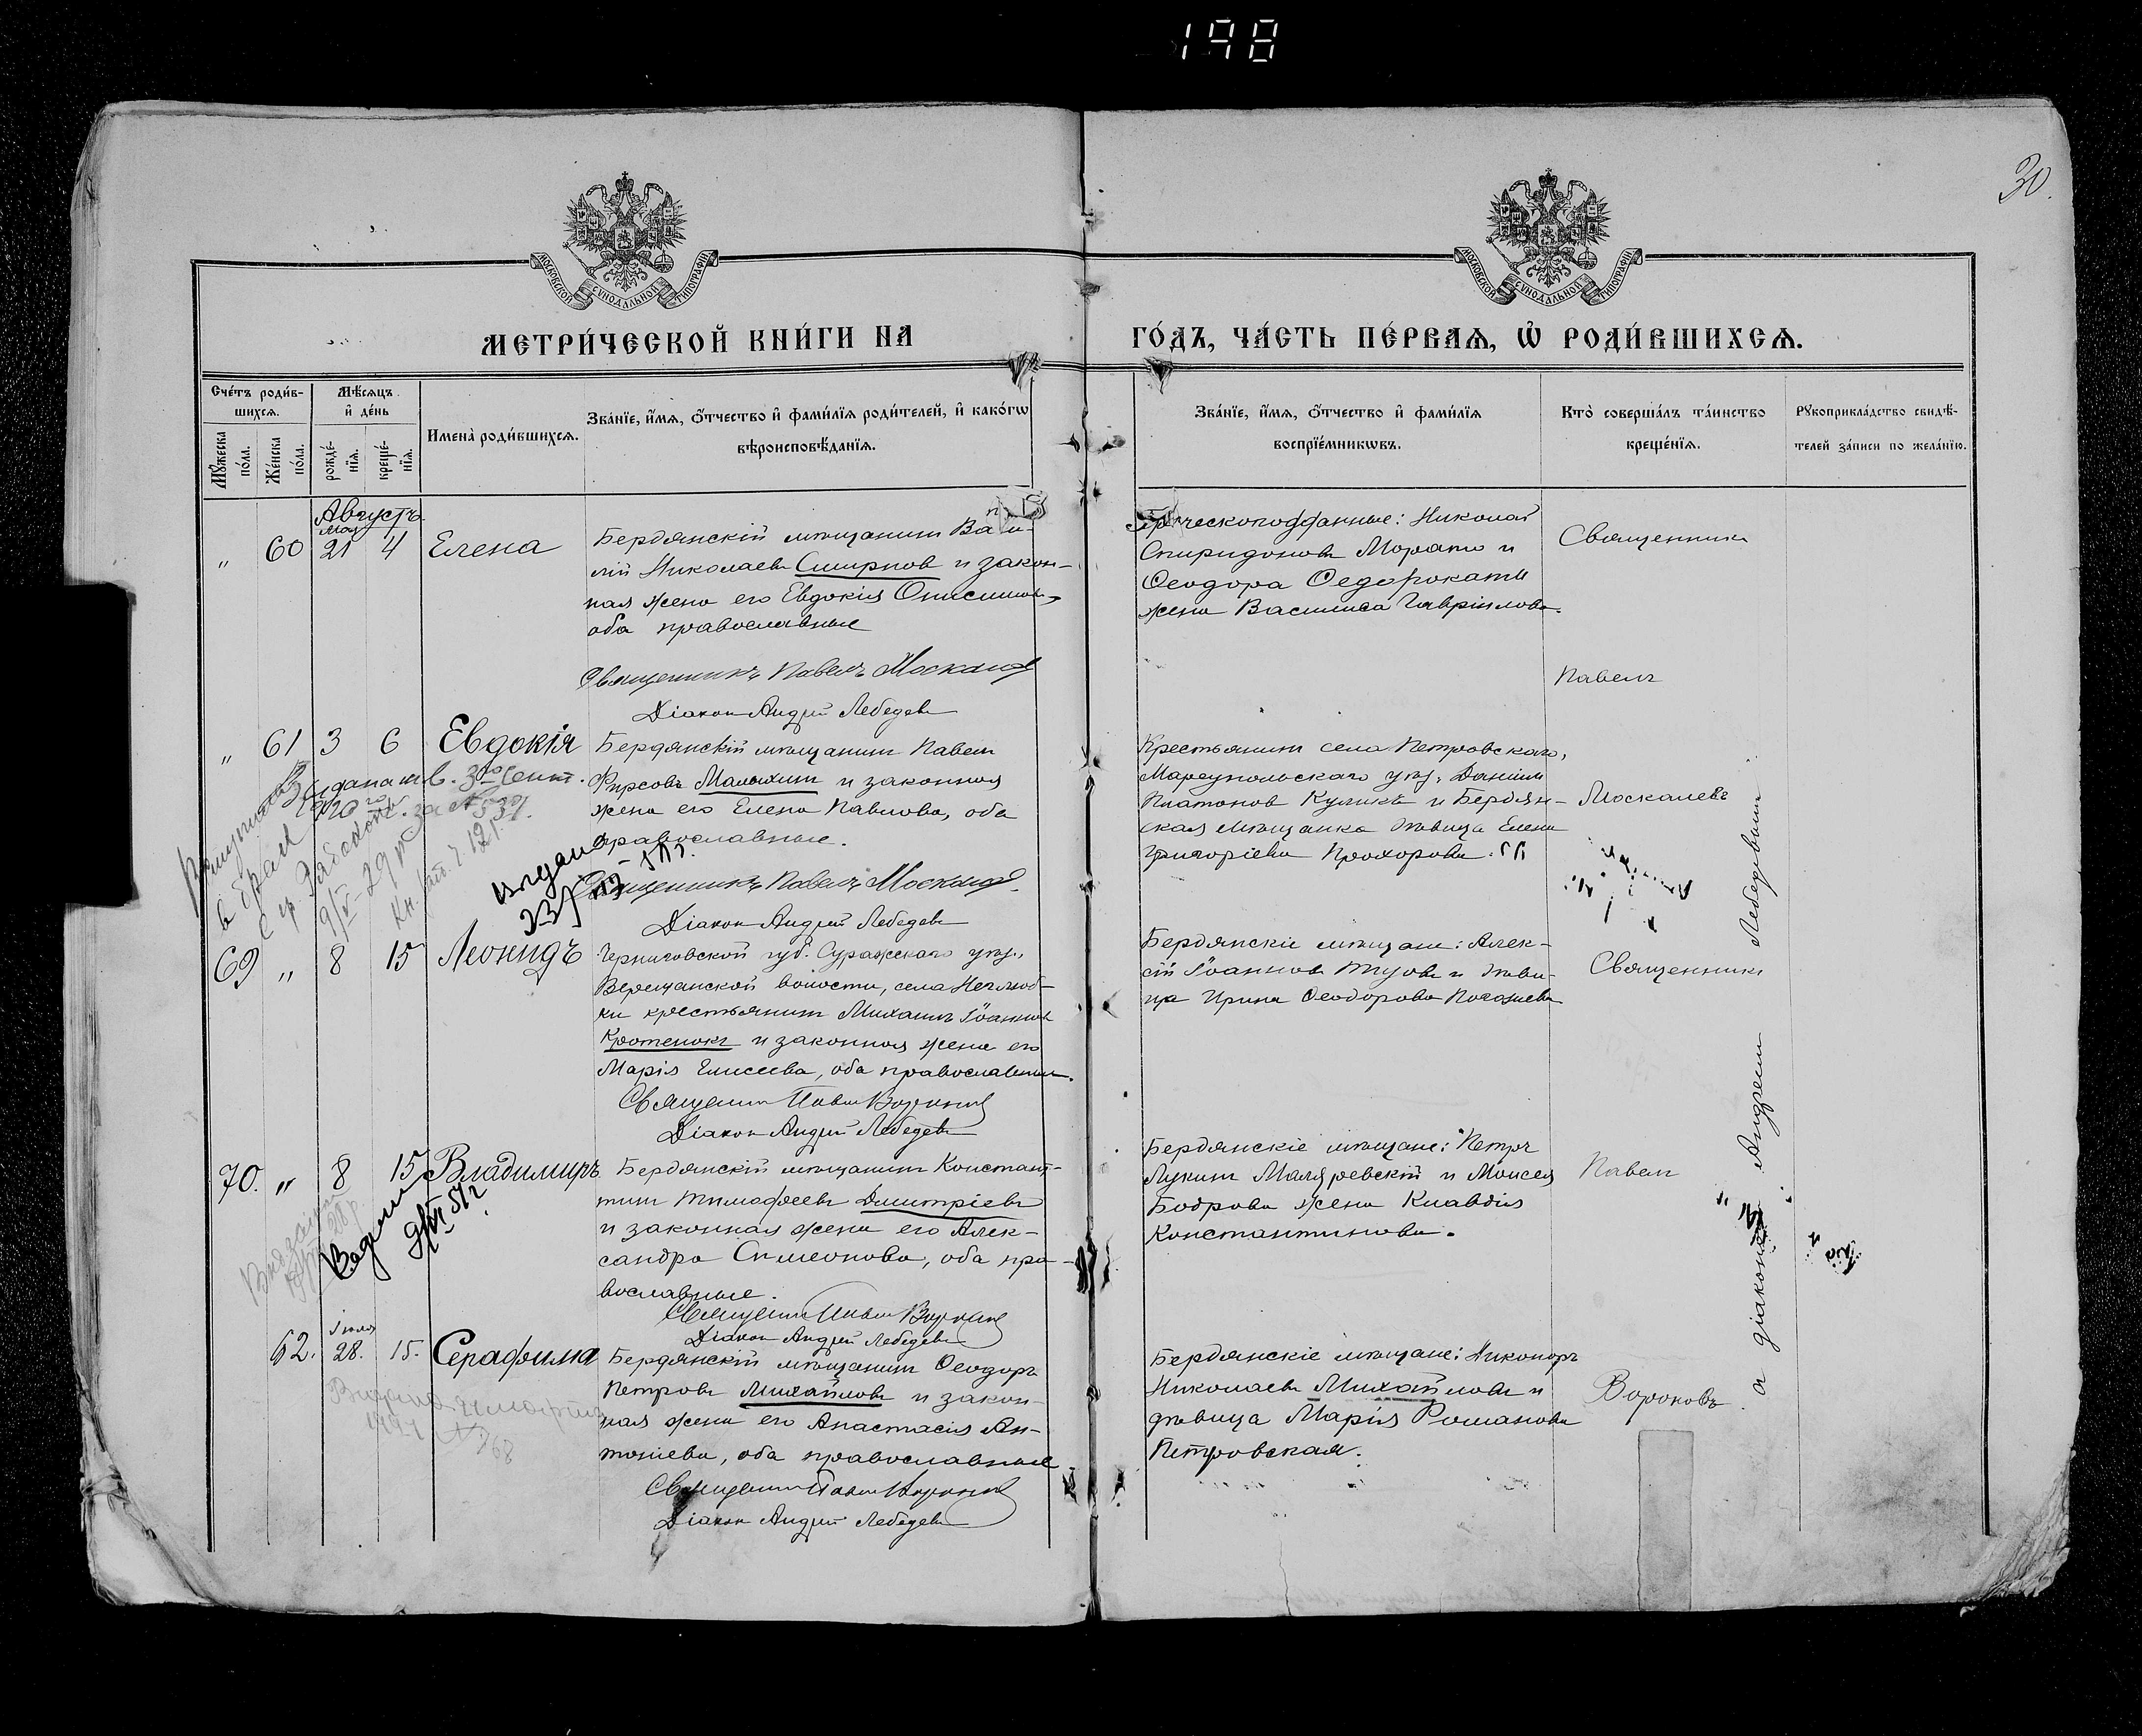 198
30.
МОСКОВСКОЙ СУНОДАЛЬНОЙ ТИПОГРАФІИ
МОСКОВСКОЙ СУНОДАЛЬНОЙ ТИПОГРАФІИ
МЕТРИ́ЧЕСКОЙ КНИ́ГИ НА
ГО́ДЪ, ЧА́СТЬ ПЕ́РВАѦ, Ѡ҆ РОДИ́ВШИХСѦ.
Счéтъ роди́в-
шихсѧ.
Мꙋ́жеска по́ла.
Же́нска по́ла.
Мѣ́сѧцъ
и҆ де́нь
рожде́-
нїѧ.
креще́-
нїѧ.
Имена̀ роди́вшихсѧ.
Зва́нїе, и҆́мѧ, ѻ҆́тчество и҆ фами́лїѧ роди́телей, и҆ како́гѡ
вѣроисповѣ́данїѧ.
Зва́нїе, и҆́мѧ, ѻ҆́тчество и҆ фами́лїѧ
воспрїе́мникѡвъ.
Кто̀ соверша́лъ та́инство
креще́нїѧ.
Рꙋкоприкла́дство свидѣ́-
телей за́писи по жела́нїю.
Августъ
Мая
" 60 21 4 Елена
Бердянскій мѣщанинъ Васи-
лій Николаевъ Смирновъ и закон-
ная жена его Евдокія Онисимова,
оба православные
Священникъ Павелъ Москалевъ
Діаконъ Андрей Лебедевъ
Греческоподданные: Николай
Спиридоновъ Морато и
Ѳеодора
жена Василиса Гавріилова.
Священникъ
Павелъ
Москалевъ
" 61 3 6 Евдокія
Бердянскій мѣщанинъ Павелъ
Фирсовъ Малыхинъ и законная
жена его Елена Павлова, оба
православные.
Священникъ Павелъ Москалевъ
Діаконъ Андрей Лебедевъ
Крестьянинъ села Петровскаго,
Маріупольскаго уѣз. Даніилъ
Платоновъ Куликъ и Бердян-
ская мѣщанка дѣвица Елена
Григоріева Прохорова.
69 " 8 15 Леонидъ
Черниговской губ. Суражскаго уѣз.,
Верещакской волости, села Неглюб-
ки крестьянинъ Михаилъ Іоанновъ
Кротенокъ и законная жена его
Марія Елисеева, оба православные.
Священникъ Павелъ Вороновъ
Діаконъ Андрей Лебедевъ
Бердянскіе мѣщане: Алек-
сій Іоанновъ и дѣви-
ца Ирина Ѳеодорова
Священникъ
Павелъ
Вороновъ
70. " 8 15 Владимиръ
Бердянскій мѣщанинъ Констан-
тинъ Тимофеевъ Димитріевъ
и законная жена его Алек-
сандра Симеонова, оба пра-
вославные.
Священникъ Павелъ Вороновъ
Діаконъ Андрей Лебедевъ
Бердянскіе мѣщане: Петръ
Лукинъ Маляревскій и Моисея
Боброва жена Клавдія
Константинова.
Іюля
62. 28. 15. Серафима
Бердянскій мѣщанинъ Ѳеодоръ
Петровъ Михайловъ и закон-
ная жена его Анастасія Ан-
тоніева, оба православные
Священникъ Павелъ Вороновъ
Діаконъ Андрей Лебедевъ
Бердянскіе мѣщане: Никоноръ
Николаевъ Михайловъ и
дѣвица Марія Романова
Петровская.
съ діакономъ Андреемъ Лебедевымъ